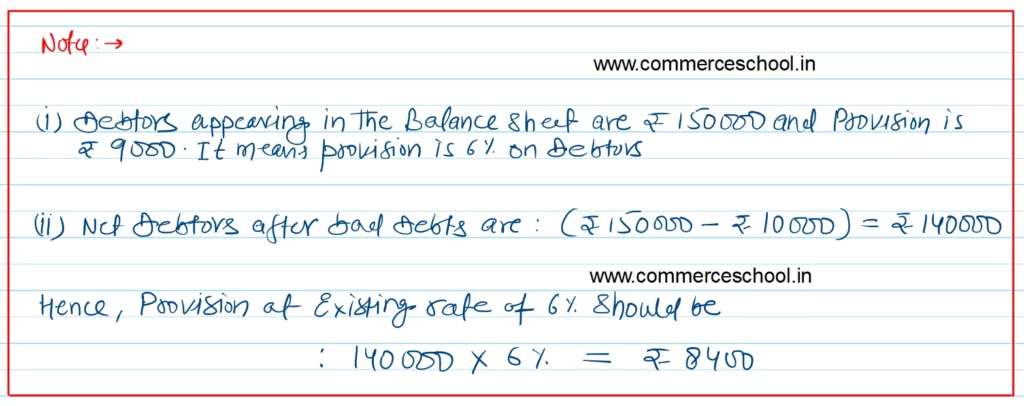 Note:→
www.commerceschool.in
(i) Debtors appearing in the Balance sheet are ₹ 150000 and Provision is
₹ 9000. It means provision is 6% on Debtors
(ii) Net Debtors after bad Debts are : (₹ 150000 - ₹ 10000) = ₹ 140000
www.commerceschool.in
Hence, Provision at Existing rate of 6% Should be
: 140000 × 6% = ₹ 8400